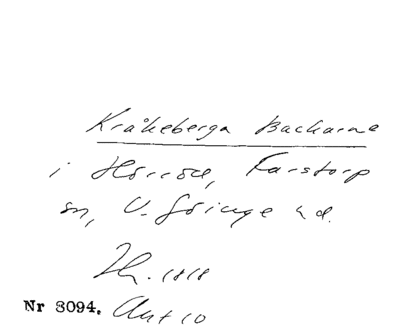 Kråkeberga Backarne
i Hörröd, Farstorp
sn, V. Göinge hd.
Lh. 1818
Nr 3094. Akt 10